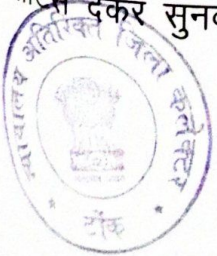 देकर
न्यायालय अतिरिक्त जिला कलेक्टर
टोंक